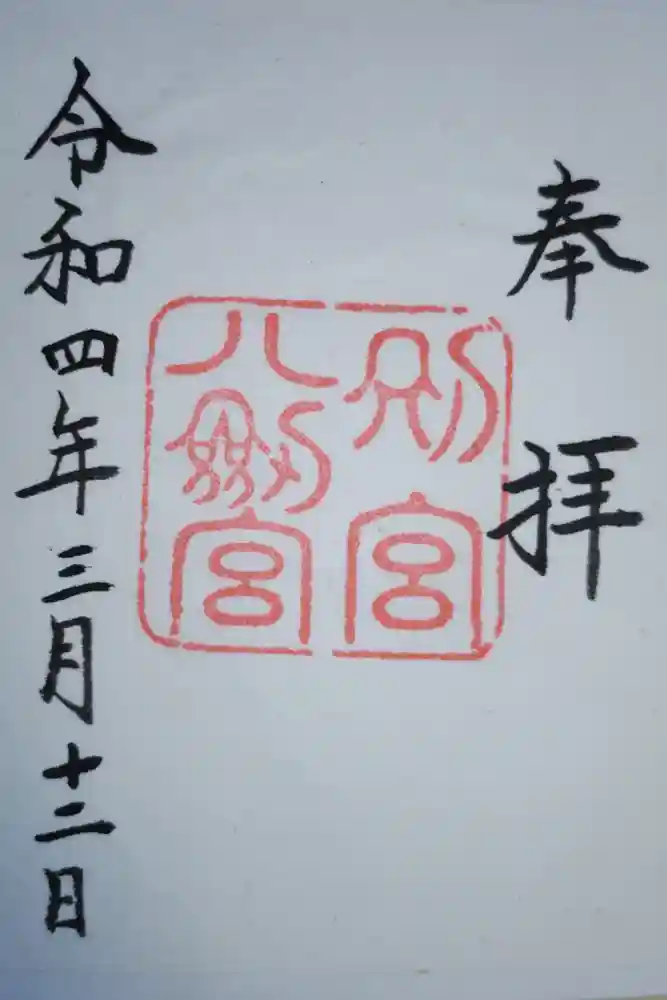 奉拝
別宮
八剱宮
令和四年三月十二日